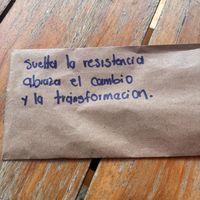 Suelta la resistencia
abraza el cambio
y la transformacion.